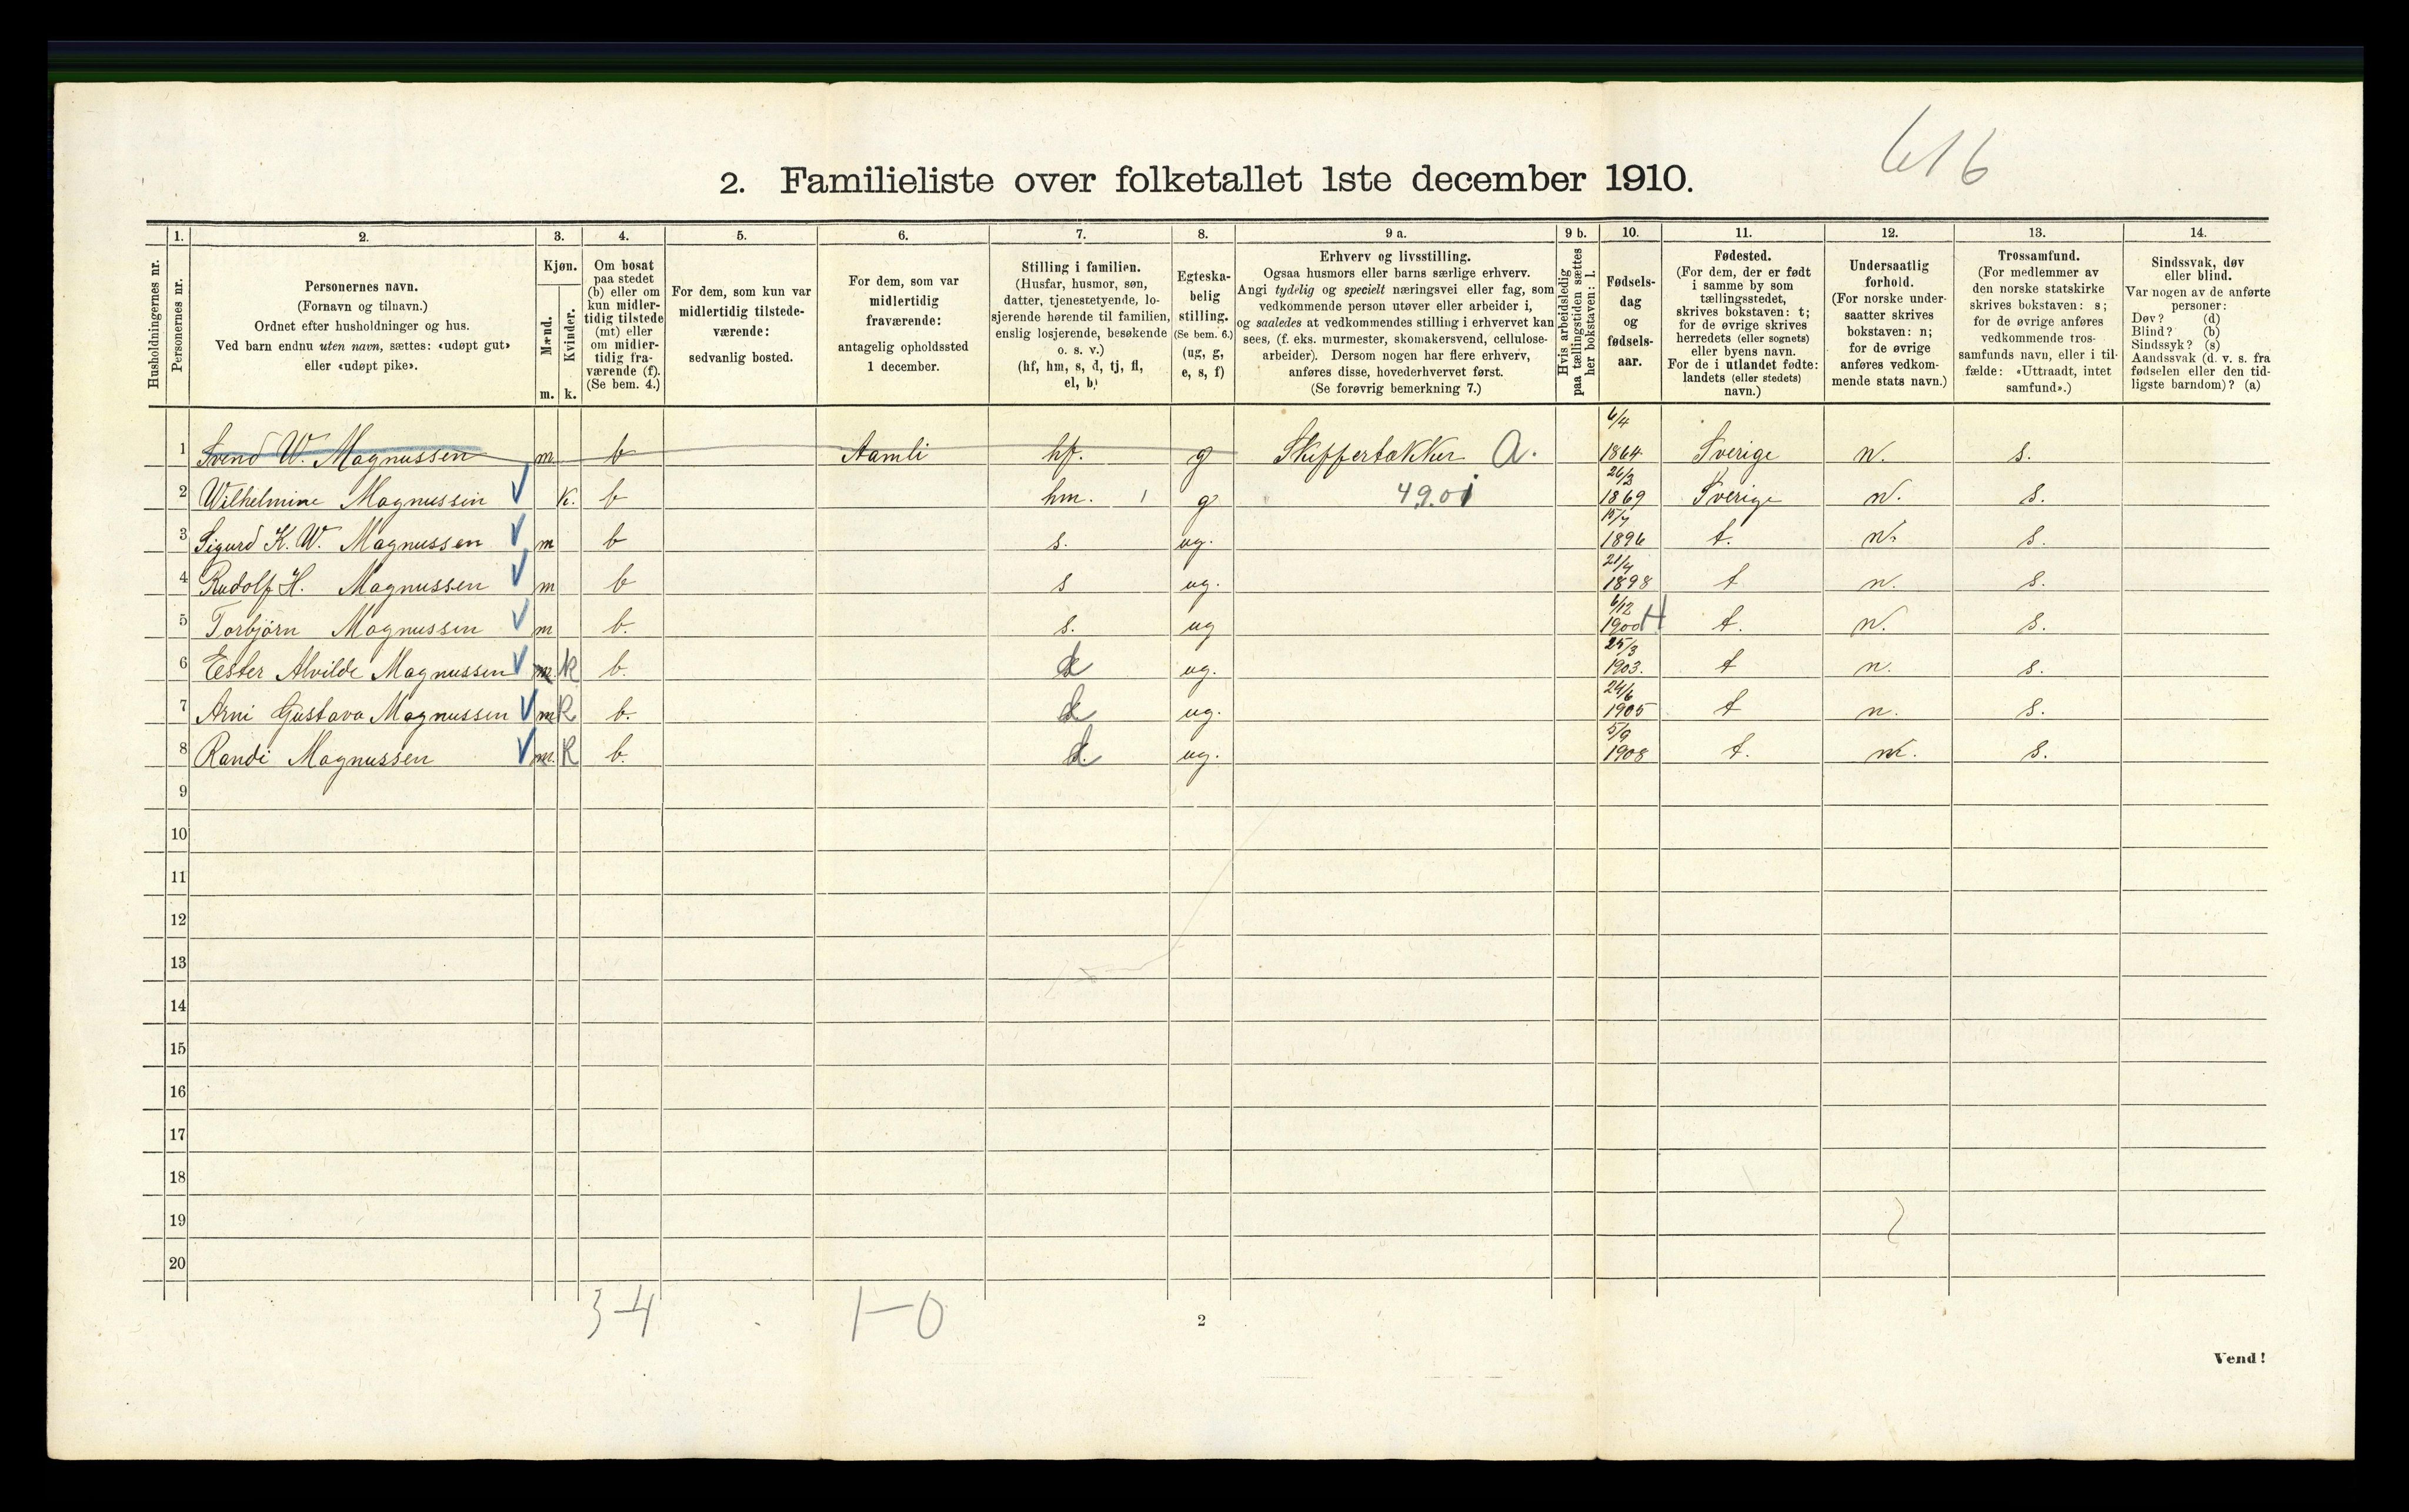 616
2. Familieliste over folketallet 1ste december 1910.
1. 2. 3. 4. 5. 6. 7. 8. 9 a. 9 b. 10. 11. 12. 13. 14.
Husholdningernes nr.
Personernes nr.
Personernes navn.
(Fornavn og tilnavn.)
Ordnet efter husholdninger og hus.
Ved barn endnu uten navn, sættes: «udøpt gut»
eller «udøpt pike».
Kjøn.
Mænd.
Kvinder.
m. k.
Om bosat
paa stedet
(b) eller om
kun midler-
tidig tilstede
(mt) eller
om midler-
tidig fra-
værende (f).
(Se bem. 4.)
For dem, som kun var
midlertidig tilstede-
værende:
sedvanlig bosted.
For dem, som var
midlertidig
fraværende:
antagelig opholdssted
1 december.
Stilling i familien.
(Husfar, husmor, søn,
datter, tjenestetyende, lo-
sjerende hørende til familien,
enslig losjerende, besøkende
o. s. v.)
(hf, hm, s, d, tj, fl,
el, b)
Egteska-
belig
stilling.
(Se bem. 6.)
(ug, g,
e, s, f)
Erhverv og livsstilling.
Ogsaa husmors eller barns særlige erhverv.
Angi tydelig og specielt næringsvei eller fag, som
vedkommende person utøver eller arbeider i,
og saaledes at vedkommendes stilling i erhvervet kan
sees, (f. eks. murmester, skomakersvend, cellulose-
arbeider). Dersom nogen har flere erhverv,
anføres disse, hovederhvervet først.
(Se forøvrig bemerkning 7.)
Hvis arbeidsledig
paa tællingstiden sættes
her bokstaven: l.
Fødsels-
dag
og
fødsels-
aar.
Fødested.
(For dem, der er født
i samme by som
tællingsstedet,
skrives bokstaven: t;
for de øvrige skrives
herredets (eller sognets)
eller byens navn.
For de i utlandet fødte:
landets (eller stedets)
navn.)
Undersaatlig
forhold.
(For norske under-
saatter skrives
bokstaven: n;
for de øvrige
anføres vedkom-
mende stats navn.)
Trossamfund.
(For medlemmer av
den norske statskirke
skrives bokstaven: s;
for de øvrige anføres
vedkommende tros-
samfunds navn, eller i til-
fælde: «Uttraadt, intet
samfund».)
Sindssvak, døv
eller blind.
Var nogen av de anførte
personer:
Døv? (d)
Blind? (b)
Sindssyk? (s)
Aandssvak (d. v. s. fra
fødselen eller den tid-
ligste barndom)? (a)
1 Svend W. Magnussen m b Aamli hf. g Skiffertækker A. 6/4 1864 Sverige n. s.
2 Wilhelmine Magnussen k. b hm. g 49.01 26/3 1869 Sverige n. s.
3 Sigurd K. W. Magnussen m b s. ug. 15/7 1896 t. n. s.
4 Rudolf H. Magnussen m b s ug. 21/4 1898 t n. s.
5 Torbjörn Magnussen m b. s. ug 6/12 1900 H t. n. s.
6 Ester Alvilde Magnussen m. k b. d ug. 25/3 1903. t n. s.
7 Arni Gustava Magnussen m k b. d ug. 24/6 1905 t n. s.
8 Randi Magnussen m. k b. d. ug. 5/9 1908 t. n. s.
9
10
11
12
13
14
15
16
17
18
19
20
3-4 1-0
2
Vend!